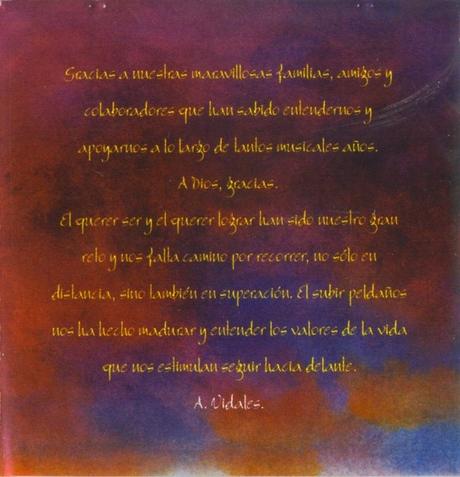 Gracias a nuestras maravillosas familias, amigos y
colaboradores que han sabido entendernos y
apoyarnos a lo largo de tantos musicales años.
A Dios, gracias.
El querer ser y el querer lograr han sido nuestro gran
reto y nos falta camino por recorrer, no sólo en
distancia, sino también en superación. El subir peldaños
nos ha hecho madurar y entender los valores de la vida
que nos estimulan seguir hacia delante.
A. Vidales.